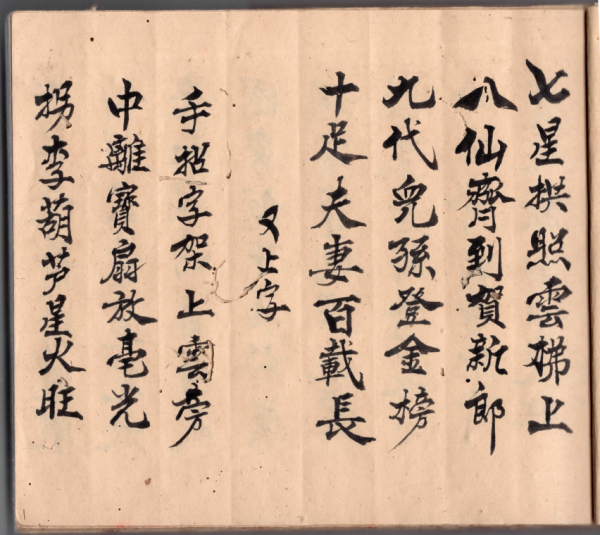 七星拱照雲梯上
八仙齊到賀新郎
九代兒孫登金榜
十足夫妻百載長
又上字
手招字架上雲旁
中離寶扇放毫光
拐李葫芦星火旺